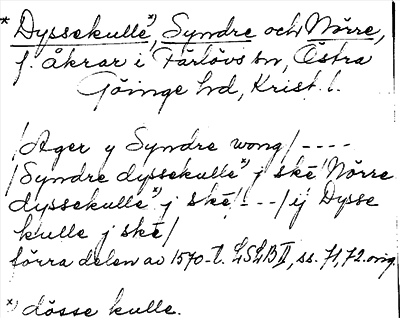 * Dyssekulle*), Syndre och Nörre,
f. åkrar i Färlövs sn, Östra
Göinge hd, Krist. l.
/Ager y Syndre wong/ ----
/Syndre dyssekulle*) j ske/ Nörre
dyssekulle*) j ske/ --- / ij Dysse
kulle j ske/
förra delen av 1570-t. LSLB II, ss. 71, 72. orig.
*) dösse kulle.